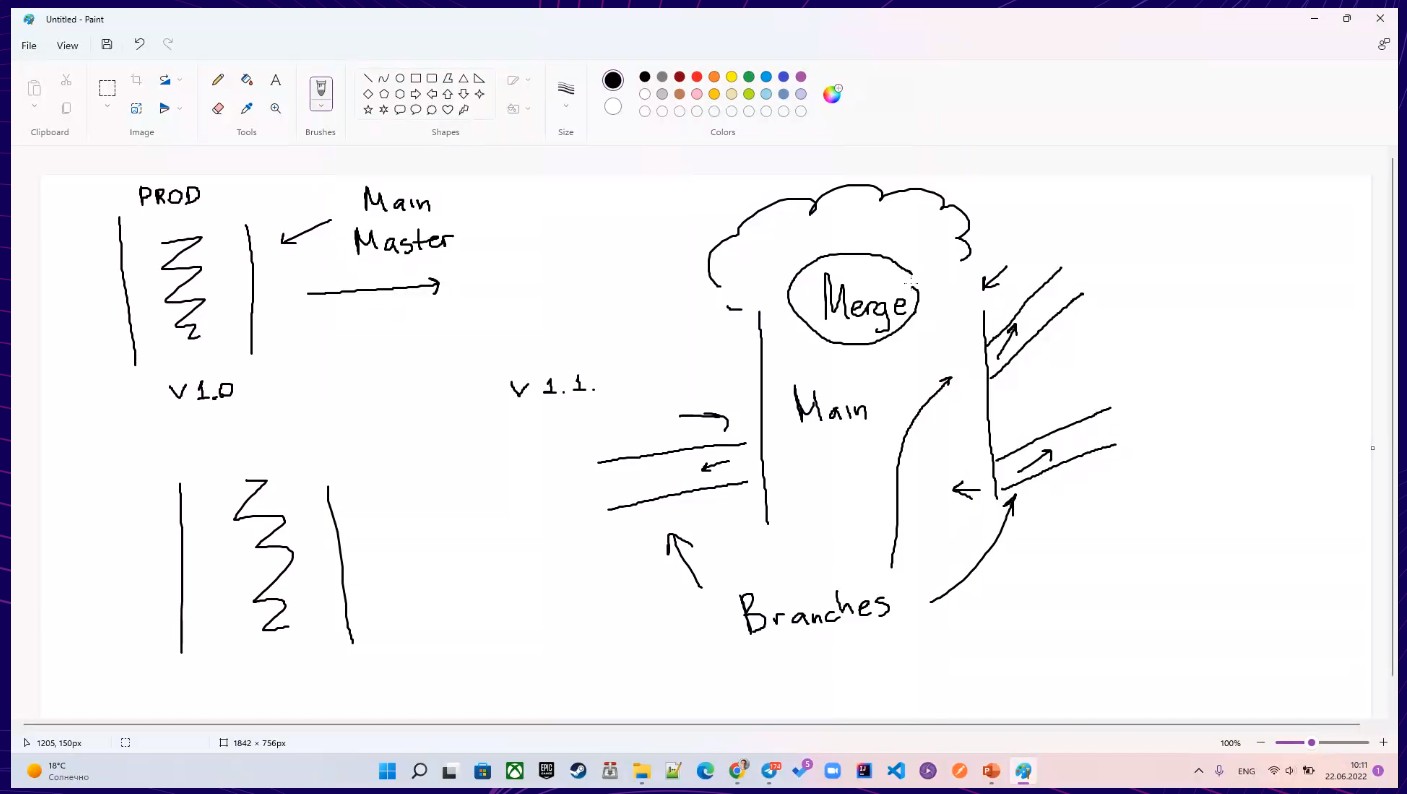 Untitled - Paint
File View
Clipboard
Image
Tools
Brushes
Shapes
Size
Colors
PROD
Main
Master
v 1.0
v 1.1.
Merge
Main
Branches
1205, 150px
1842 × 756px
100%
18°C
Солнечно
174
5
ENG
10:11
22.06.2022
1